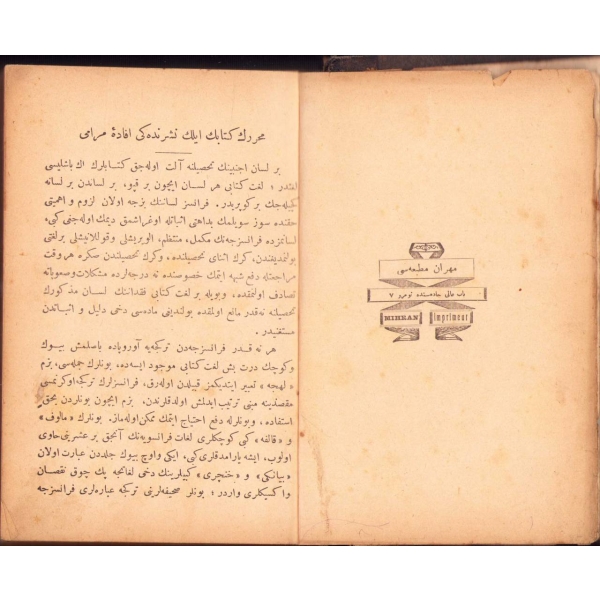 محررك كتابك ايلك نشرنده‌كى افادۀ مرامى
بر لسان اجنبينك تحصيلنه آلت اوله‌جق كتابلرك اك باشليسى
لغتدر ؛ لغت كتابى هر لسان ايچون بر قپو ، بر لساندن بر لسانه
كچيله‌جك بر كوپريدر. فرانسز لساننك بزجه اولان لزوم و اهميتى
حقنده سوز سويلمك بداهتى اثباتله اوغراشمق ديمك اوله‌جغى كبى،
لسانمزده فرانسزجه‌نك مكمل، منتظم، الويريشلى وقوللانيشلى برلغتى
بولنمديغندن، كرك اثناى تحصيلنده، وكرك تحصيلندن صكره هر وقت
مراجعتله دفع شبهه ايتمك خصوصنده نه درجه‌لرده مشكلات وصعوباته
تصادف اولنمقده، وبويله بر لغت كتابى فقداننك لسان مذكورك
تحصيلنه نه‌قدر مانع اولمقده بولنديغى ماده‌سى دخى دليل و اثباتدن
مستغنيدر.
هر نه قدر فرانسزجه‌دن تركجه‌يه آوروپاده باصلمش بيوك
وكوچك درت بش لغت كتابى موجود ايسه‌ده، بونلرك جمله‌سى، بزم
« لهجه » تعبير ايتديكمز قبيلدن اوله‌رق، فرانسزلرك تركجه اوكرنمسى
مقصدينه مبنى ترتيب ايدلمش اولدقلرندن، بزم ايچون بونلردن بحق
استفاده، وبونلرله دفع احتياج ايتمك ممكن اوله‌ماز. بونلرك « مالوف »
و « قالفه » كبى كوچكلرى لغات فرانسويه‌نك آنجق بر عشرينى حاوى
اولوب، ايشه يارامدقلرى كبى، ايكى واوچ بيوك جلددن عبارت اولان
« بيانكى » و « خنچرى » كبيلرينك دخى لغاتجه پك چوق نقصان
واكسيكلرى واردر ؛ بونلر صحيفه‌لرينى تركجه عباره‌لرى فرانسزجه
مهران مطبعه‌سى
باب عالى جاده‌سنده نومرو ٧
MIHRAN Imprimeur